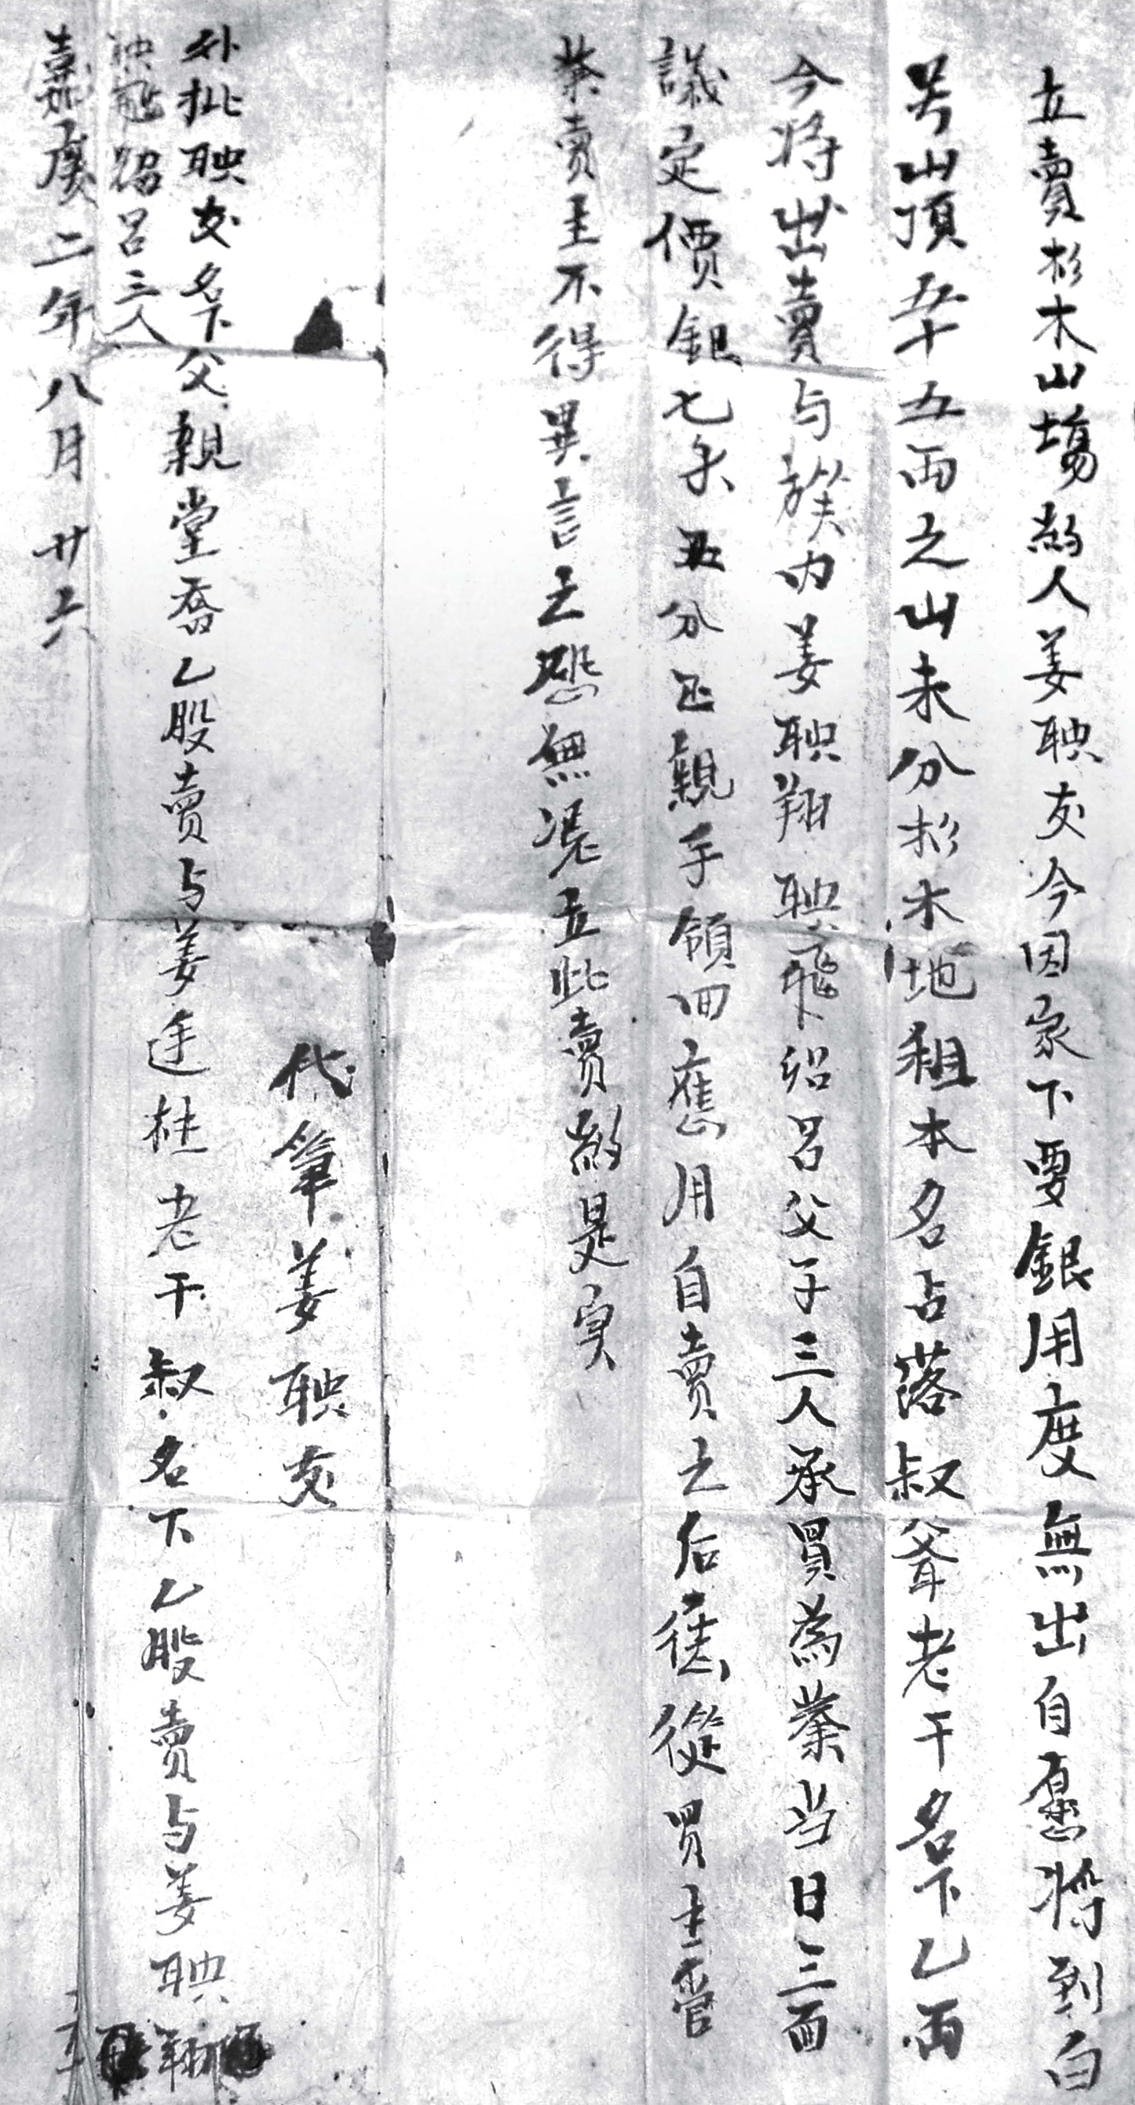 立賣杉木山塲約人姜映友今因家下要銀用度無出自愿將到白
号山頂五十五両之山未分杉木地租本名占落叔爷老干名下乙両
今将出賣与族内姜映翔映飛紹呂父子三人承買為業当日三面
議定價銀七禾五分正親手領回應用自賣之后凴從買主管
業賣主不得異言立恐無凴立此賣約是寔
代筆姜映友
外批映友名下父親堂乔乙股賣与姜廷桂老干叔名下乙股賣与姜映翔
映飛紹呂三人
嘉慶二年八月廿六